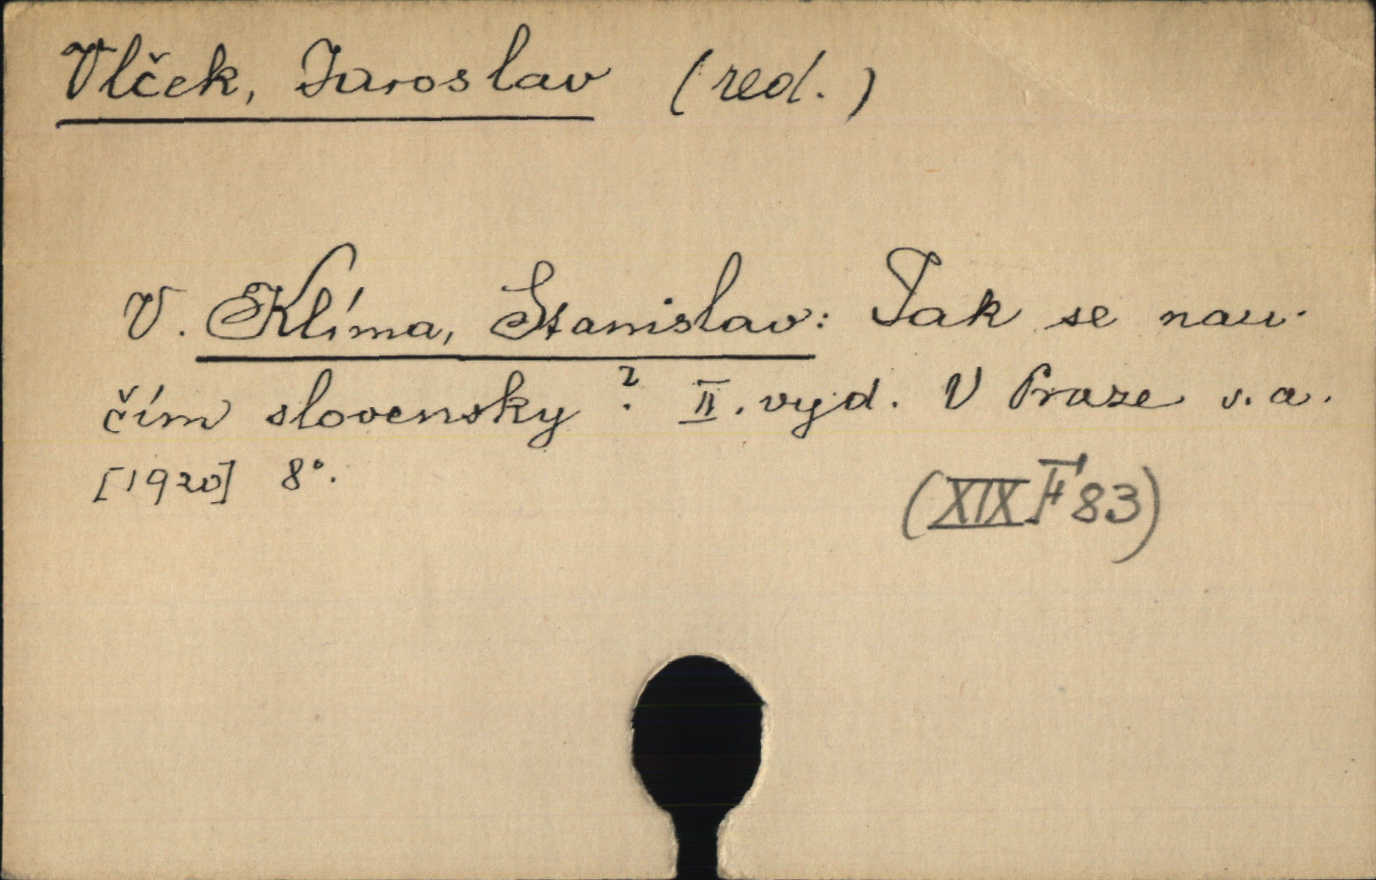 Vlček, Jaroslav (red.)
V. Klíma, Stanislav: Jak se nau-
čím slovensky? II. vyd. V Praze s. a.
[1920] 8°.
(XIX F 83)